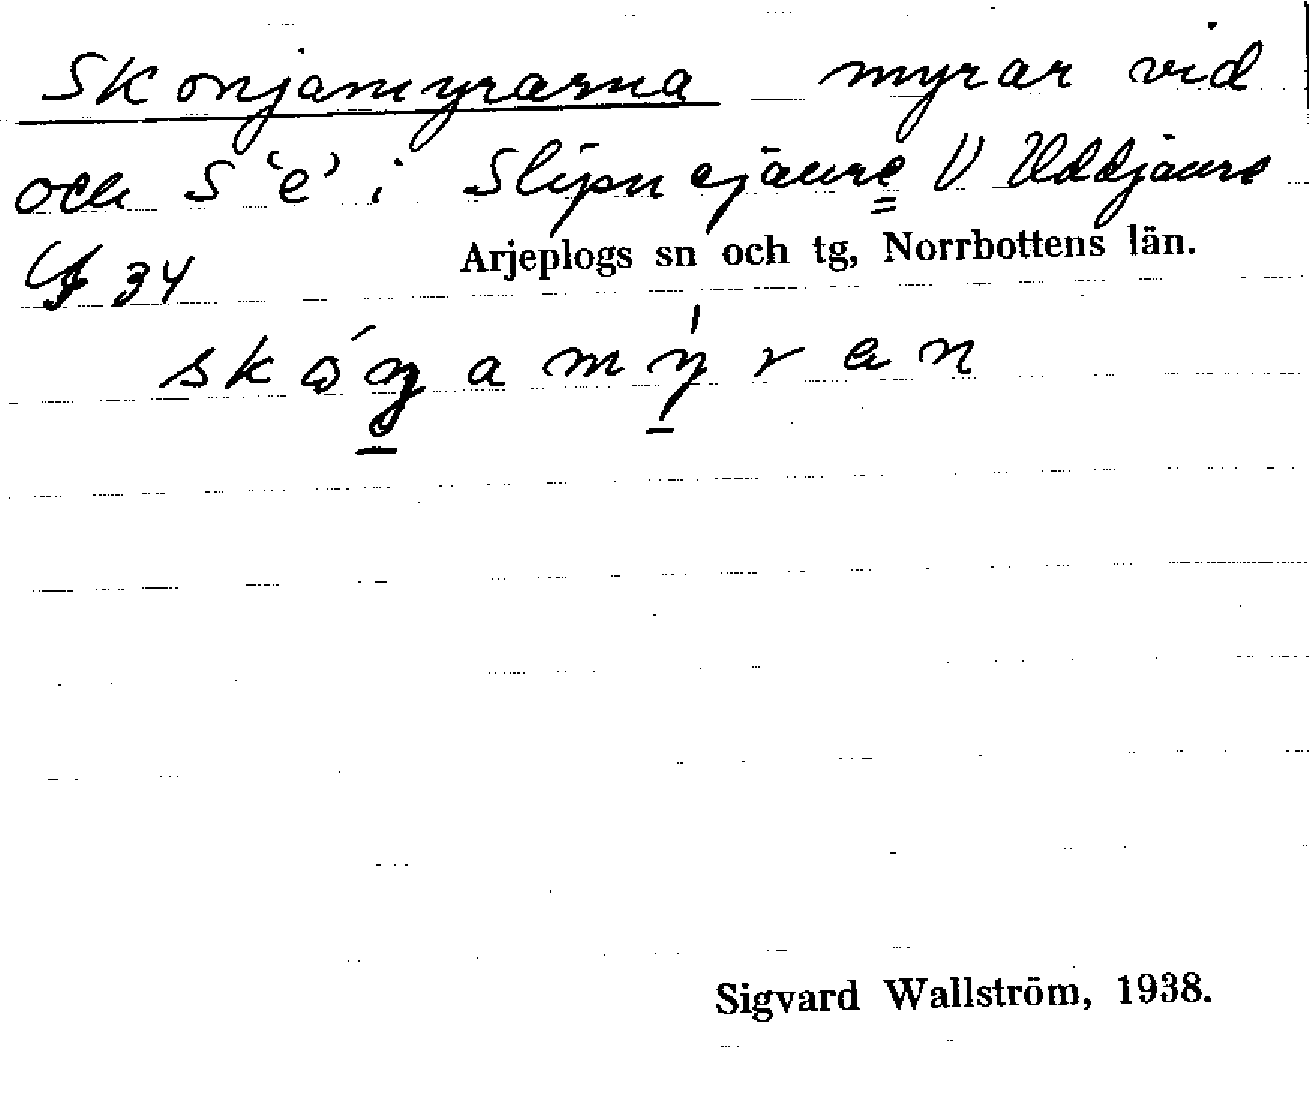 Skonjamyrarna myrar vid
och S 'e' i Slipnejaure V Uddjaure
34 Arjeplogs sn och tg, Norrbottens län.
Sigvard Wallström, 1938.